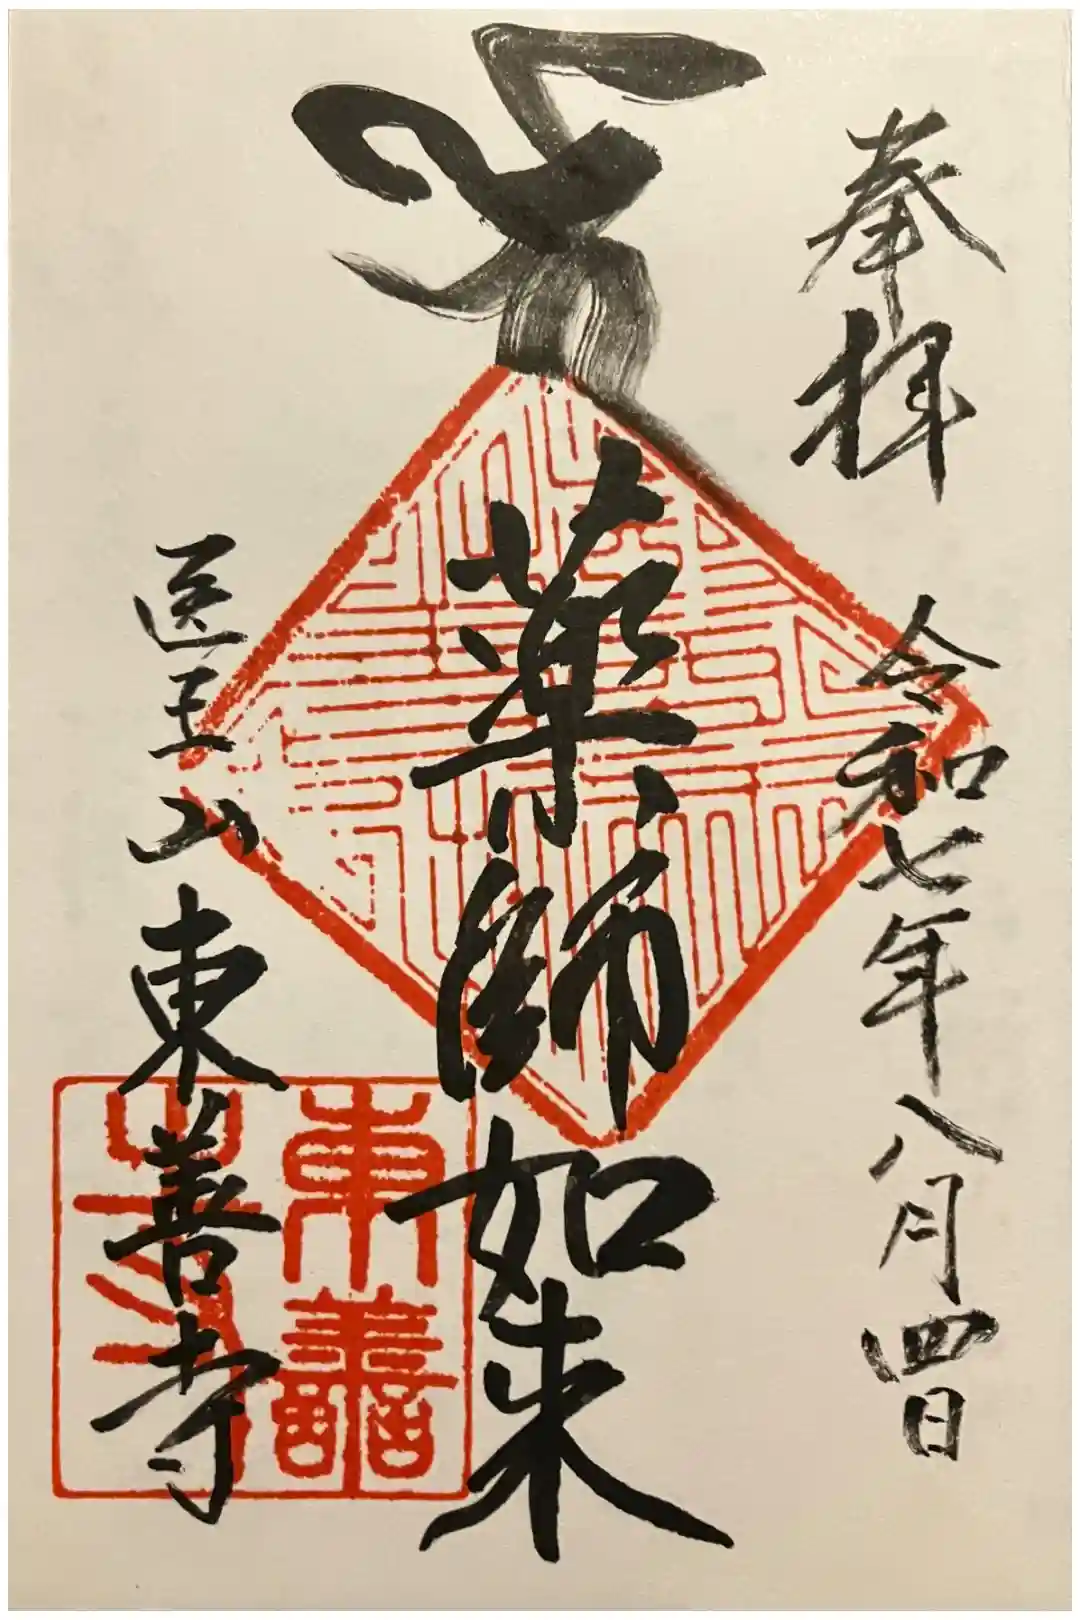 奉拝
令和七年八月四日
薬師如来
医王山東善寺
東善
寺